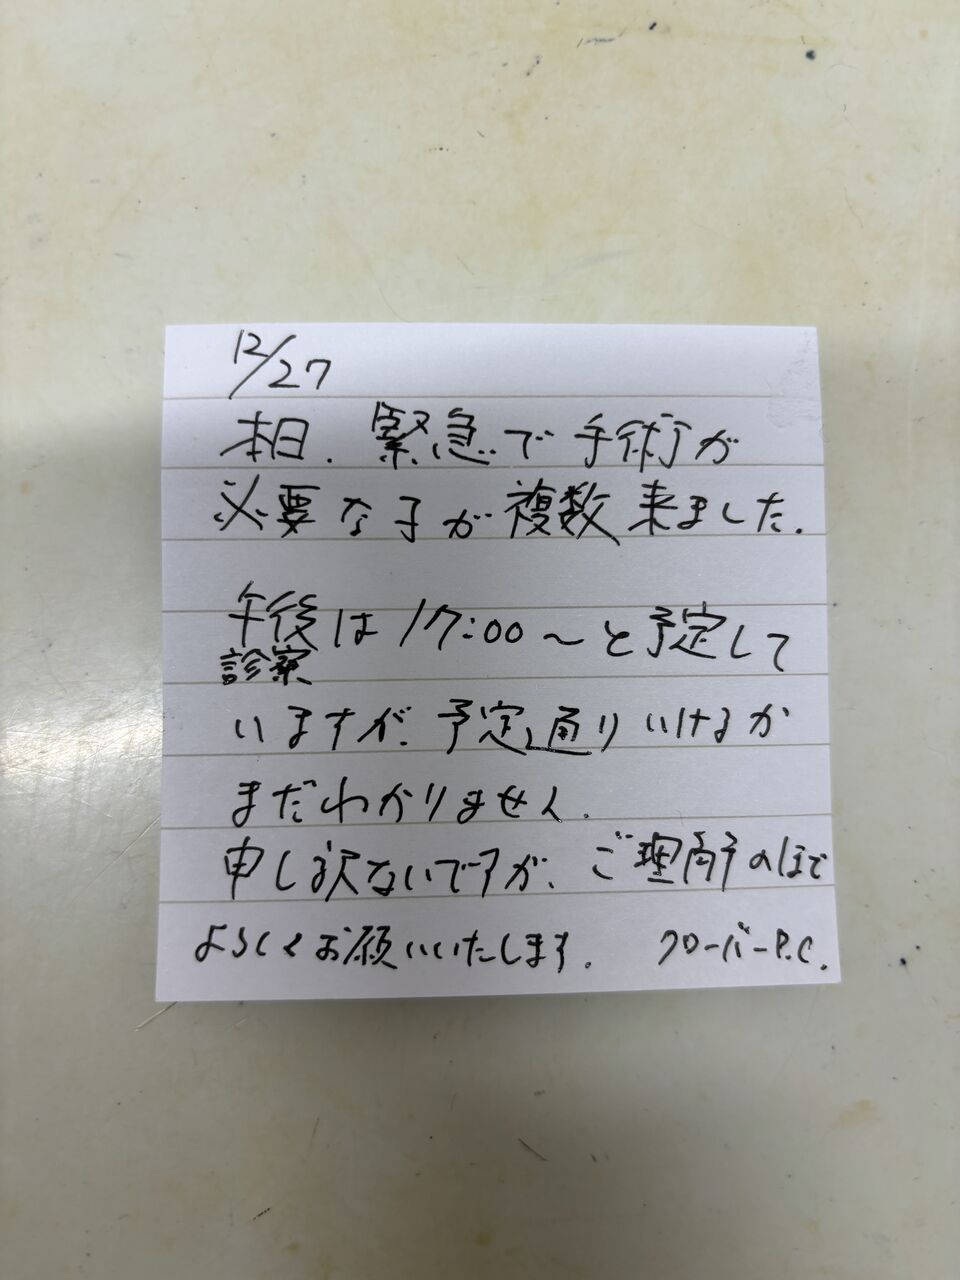 12/27
本日、緊急で手術が
必要な子が複数来ました。
午後は17:00〜と予定して
診察
いますが、予定通りいけるか
まだわかりません。
申し訳ないですが、ご理解のほど
よろしくお願いいたします。 クローバーP.C.